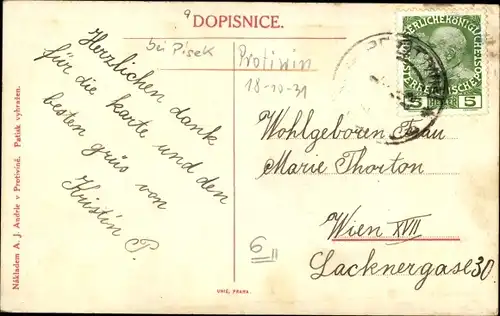 DOPISNICE.
bei Pisek
Protiwin
18-10-31
Herzlichen dank
für die karte und den
besten grüs von
Kristin P.
Wohlgeboren Frau
Marie Thorton
Wien XVII
Lacknergase 30
6
5 HELLER 5
Nákladem A. J. Andrle v Protivině. Patisk vyhražen.
UNIE, PRAHA.